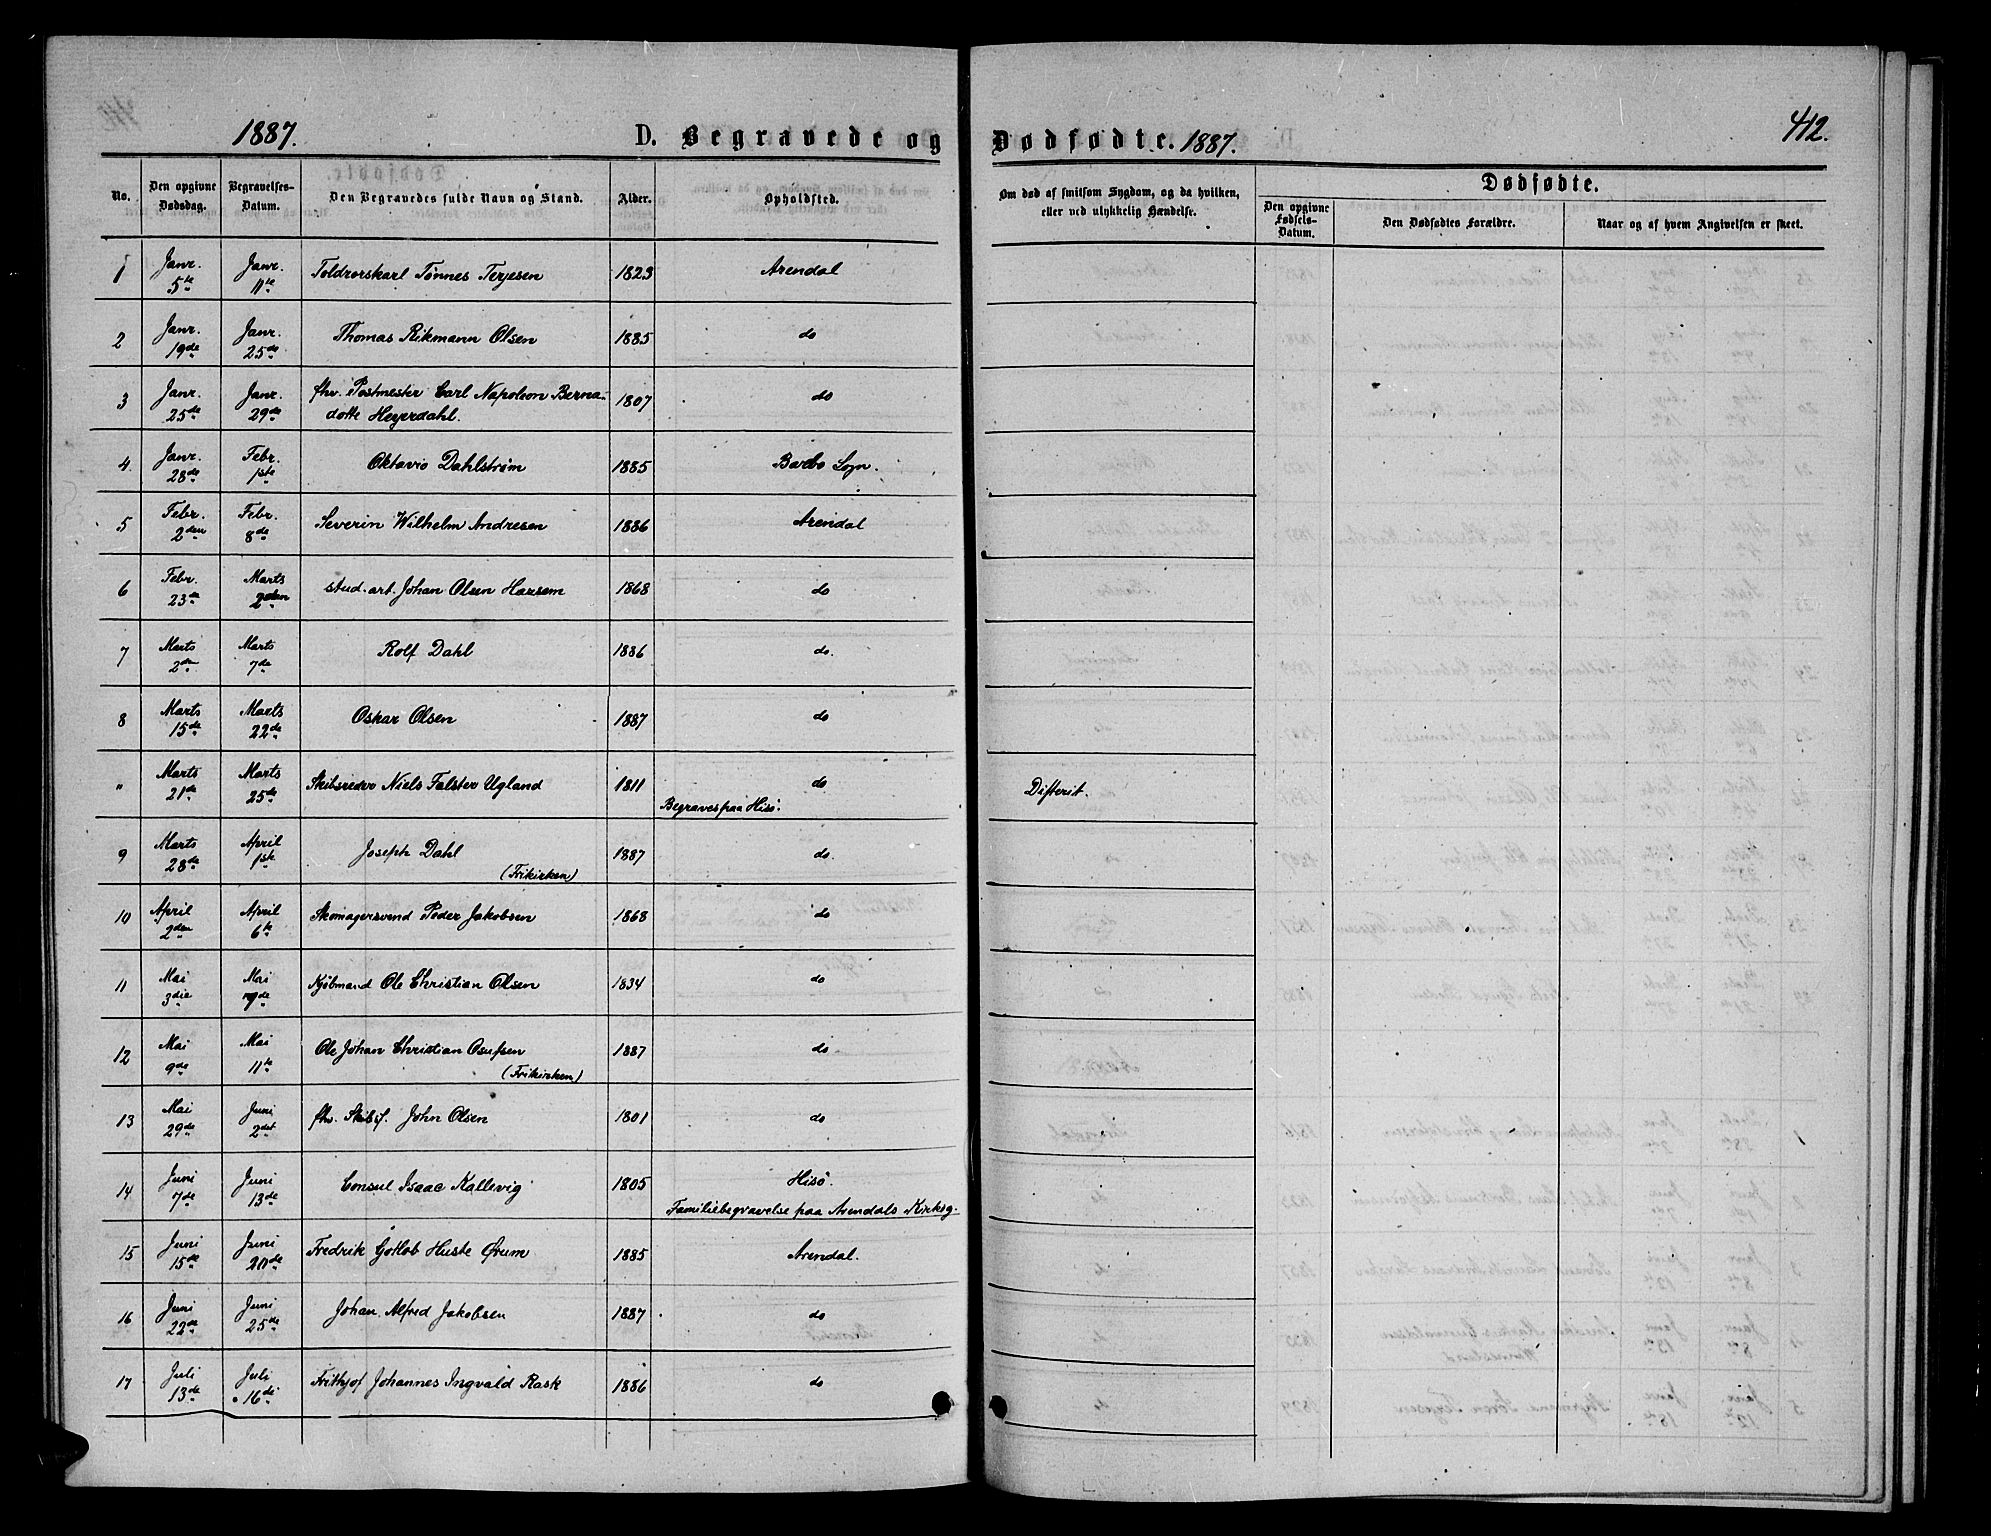 1887.
D. Begravede og
Dødfødte. 1887.
412.
No.
Den opgivne Dødsdag.
Begravelses-Datum.
Den Begravedes fulde Navn og Stand.
Alder.
Opholdsted.
Om død af smitsom Sygdom, og da hvilken, eller ved ulykkelig Hændelse.
Dødfødte.
Den opgivne Fødsels-Datum.
Den Dødfødtes Forældre.
Naar og af hvem Angivelsen er skeet.
1 Janr. 5te Janr. 11te Toldrorskarl Tønnes Terjesen 1823 Arendal
2 Janr. 19de Janr. 25de Thomas Rikmann Olsen 1885 do
3 Janr. 25de Janr. 29de fhv. Postmester Carl Napoleon Berna-
dotte Heyerdahl. 1807 do
4. Janr. 28de Febr. 1ste Oktavio Dahlstrøm 1885 Barbo Sogn.
5 Febr. 2den Febr. 8de Severin Wilhelm Andresen 1886 Arendal
6 Febr. 23de Marts 2den stud. art. Johan Olsen Hausem 1868 do
7 Marts 2den Marts 7de Rolf Dahl 1886 do.
8 Marts 15de Marts 22de Oskar Olsen 1887 do
" Marts 21de Marts 25de Skibsreder Niels Falster Ugland 1811 do
Begraves paa Hisø.
Difterit.
9 Marts 28de April 1ste Joseph Dahl 1887 do.
(Frikirken)
10 April 2den April 6te Skomagersvend Peder Jakobsen 1868 do
11 Mai 3die Mai 7de Kjøbmand Ole Christian Olsen 1834 do
12 Mai 9de Mai 11te Ole Johan Christian Osufsen 1887 do
(Frikirken)
13 Mai 29de Juni 2det fhv. Skibsf. John Olsen 1801 do
14 Juni 7de Juni 13de Consul Isaac Kallevig 1805 Hisø.
Familiebegravelse paa Arendals Kirkeg.
15 Juni 15de Juni 20de Fredrik Gotlob Huste Ørum 1885 Arendal.
16 Juni 22de Juni 25de Johan Alfred Jakobsen 1887 do
17 Juli 13de Juli 16de Frithjof Johannes Ingvald Rask 1886 do